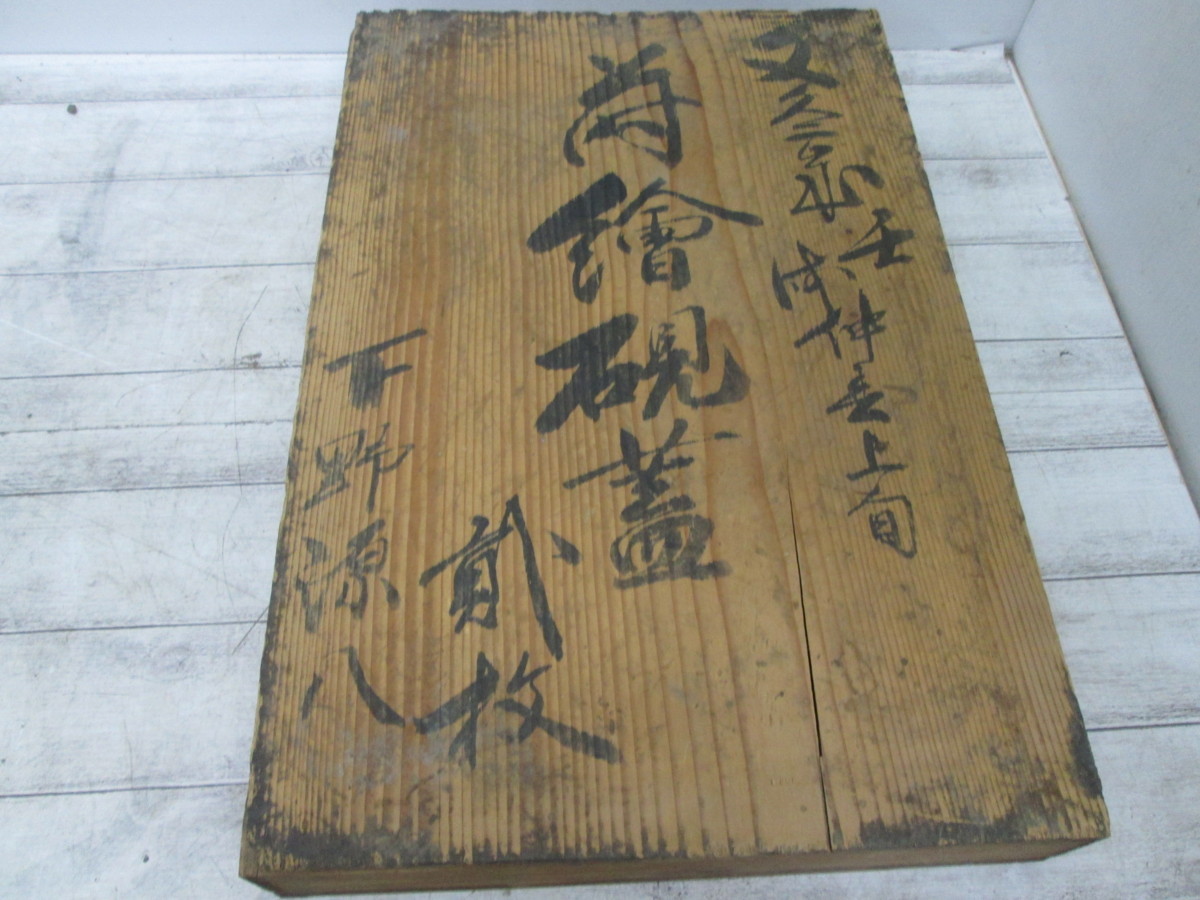 文久二年壬戌仲春上旬
蒔繪硯蓋
貮枚
下野源八